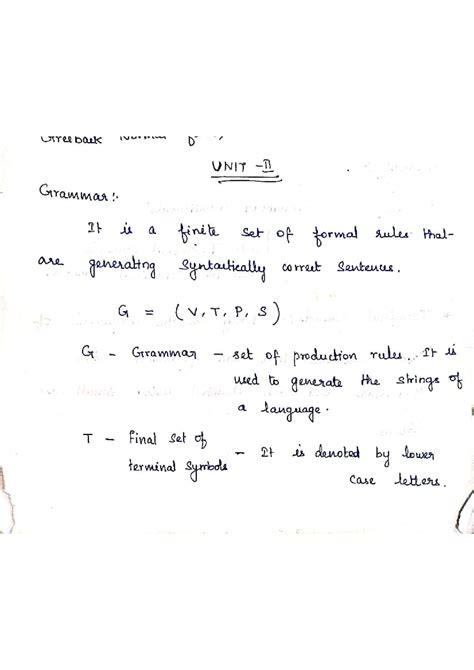 UNIT - II
Grammar :-
It is a finite set of formal rules that-
are generating syntactically correct sentences.
G = (V, T, P, S)
G - Grammar - set of production rules. It is
used to generate the strings of
a language.
T - Final set of
terminal symbols - It is denoted by lower
case letters.